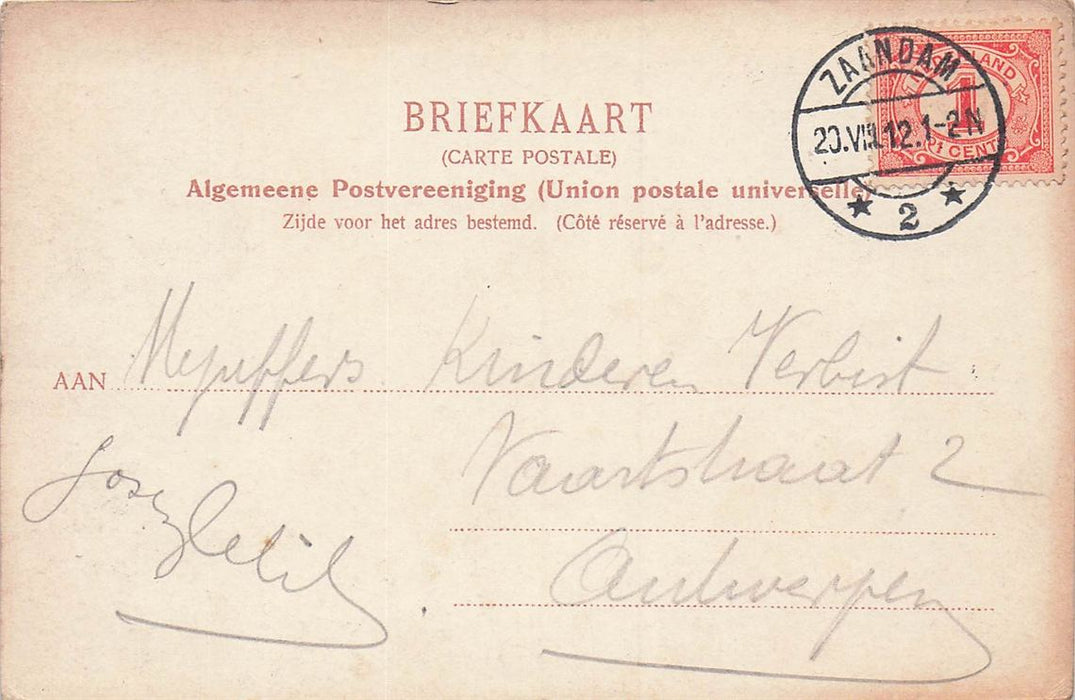 BRIEFKAART
(CARTE POSTALE)
Algemeene Postvereeniging (Union postale universelle)
Zijde voor het adres bestemd. (Côté réservé à l'adresse.)
ZAANDAM
20.VIII.12.1-2N
2
1
CENT
AAN Mejuffers Kinderen Verbist
Vaartstraat 2
Antwerpen